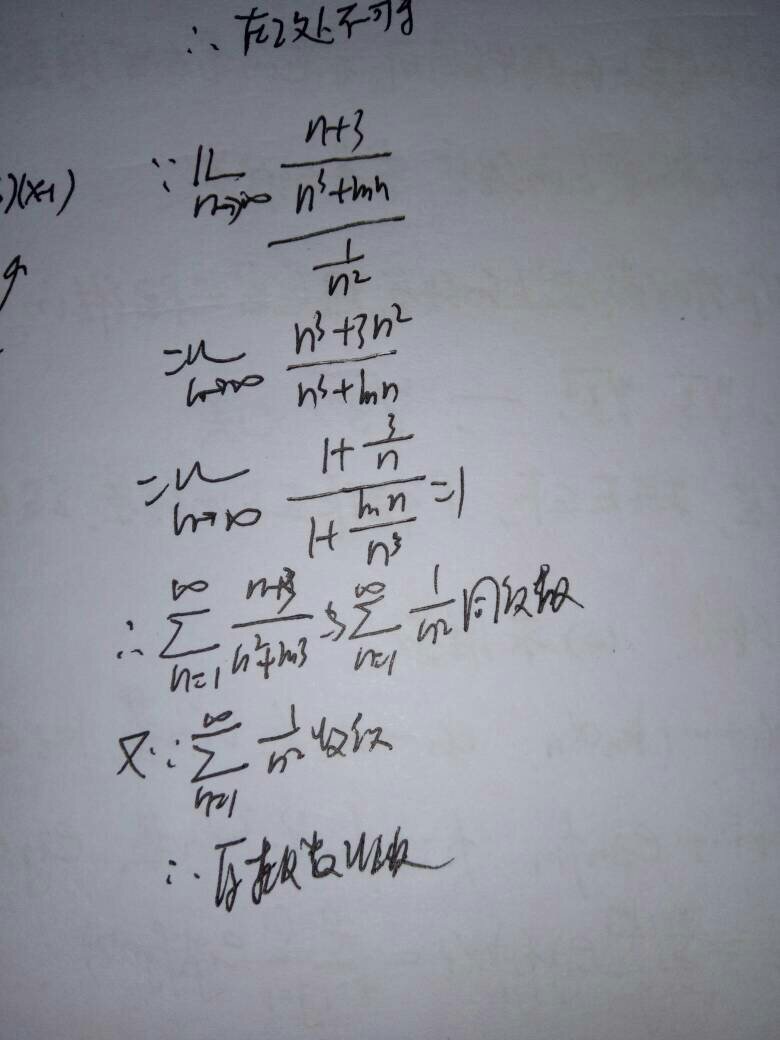 ∴ 在2处不可导
)(x-1)
∵ lim n→∞ (n+3)/(n³+ln n) / (1/n²)
= lim n→∞ (n³+3n²)/(n³+ln n)
= lim n→∞ (1+3/n)/(1+ln n/n³) =1
∴ ∑ n=1 ∞ (n+3)/(n²+ln3) 与 ∑ n=1 ∞ 1/n² 同敛散
又∵ ∑ n=1 ∞ 1/n² 收敛
∴ 原级数收敛